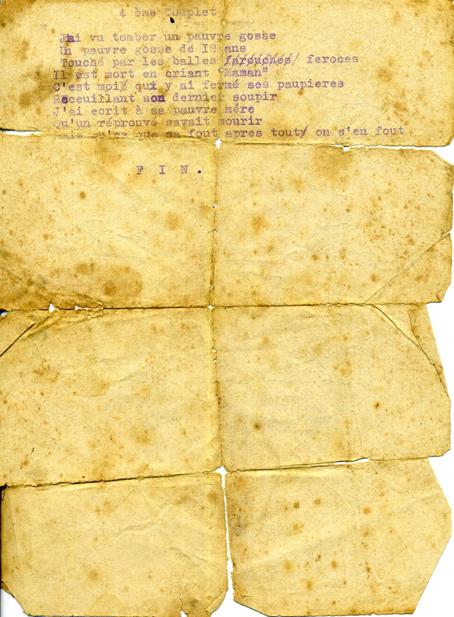 4 ème Couplet
J'ai vu tomber un pauvre gosse
Un pauvre gosse de 18 ans
Touché par les balles farouches feroces
Il est mort en criant "Maman"
C'est moi qui y ai fermé ses paupieres
Receuillant son dernier soupir
J'ai ecrit à sa pauvre mére
Qu'un réprouvé savait mourir
qu'es que sa fout apres tout/ on s'en fout
F I N .